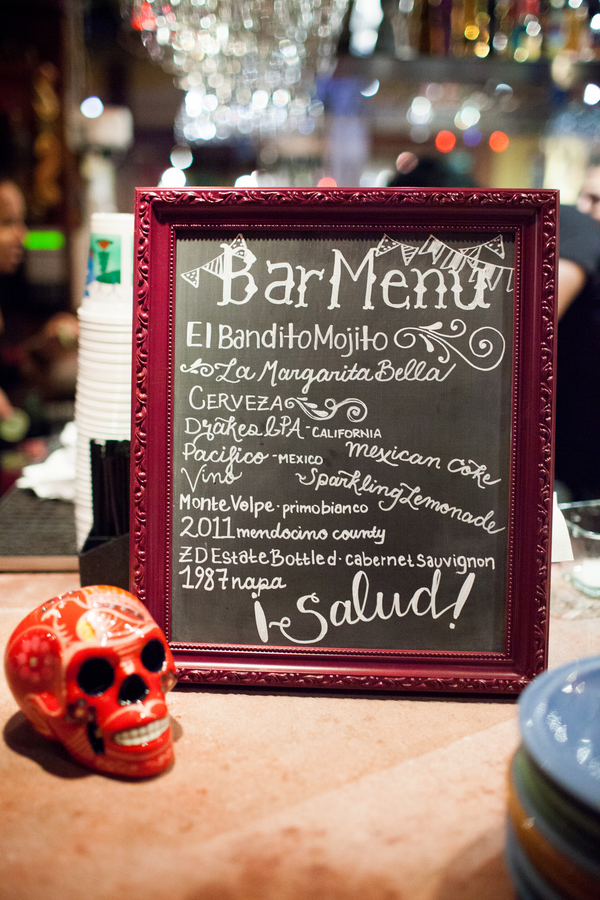 Bar Menu
El Bandito Mojito
La Margarita Bella
CERVEZA
Drakes IPA - CALIFORNIA
Pacifico - MEXICO
mexican coke
Vino
Sparkling Lemonade
Monte Volpe · primo bianco
2011 mendocino county
ZD Estate Bottled · cabernet sauvignon
1987 napa
¡Salud!